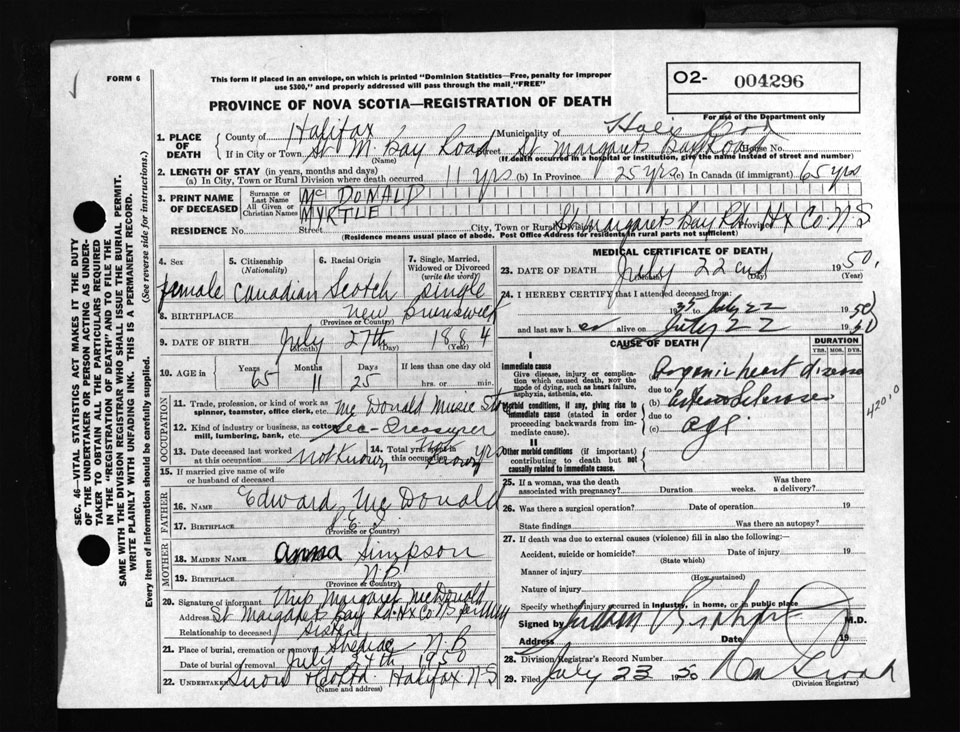 FORM 6
This form if placed in an envelope, on which is printed "Dominion Statistics—Free, penalty for improper
use $300," and properly addressed will pass through the mail, "FREE"
O2- 004296
For use of the Department only
PROVINCE OF NOVA SCOTIA—REGISTRATION OF DEATH
1. PLACE OF DEATH
County of Halifax Municipality of
If in City or Town St M Bay Road Street St Margarets Bay Road House No.
(Name) (If death occurred in a hospital or institution, give the name instead of street and number)
2. LENGTH OF STAY (in years, months and days)
(a) In City, Town or Rural Division where death occurred 11 yrs (b) In Province 25 yrs (c) In Canada (if immigrant) 65 yrs
3. PRINT NAME OF DECEASED
Surname or Last Name McDONALD
All Given or Christian Names MYRTLE
RESIDENCE No. Street City, Town or Rural Division St Margarets Bay Rd. Province Hx Co. N S
(Residence means usual place of abode. Post Office Address for residents in rural parts not sufficient)
4. Sex
female
5. Citizenship (Nationality)
Canadian
6. Racial Origin
Scotch
7. Single, Married, Widowed or Divorced (write the word)
Single
8. BIRTHPLACE New Brunswick
(Province or Country)
9. DATE OF BIRTH July 27th 1884
(Month) (Day) (Year)
10. AGE in Years Months Days If less than one day old
65 11 25 hrs. or min.
11. Trade, profession, or kind of work as spinner, teamster, office clerk, etc. McDonald Music Store
12. Kind of industry or business, as cotton mill, lumbering, bank, etc. Sec-Treasurer
13. Date deceased last worked at this occupation Not Known
14. Total yrs. spent in this occupation Not Known yrs
15. If married give name of wife or husband of deceased
FATHER
16. NAME Edward McDonald
17. BIRTHPLACE P.E.I.
MOTHER
18. MAIDEN NAME Anna Simpson
19. BIRTHPLACE N.B.
(Province or Country)
20. Signature of informant Margaret McDonald
Address St Margarets Bay Rd. Hx Co N S
Relationship to deceased sister
21. Place of burial, cremation or removal Shediac N.B
Date of burial or removal July 24th 1950
22. Undertaker Snow & Co Ltd. Halifax N S
(Name and address)
MEDICAL CERTIFICATE OF DEATH
23. DATE OF DEATH July 22nd 1950
(Month) (Day) (Year)
24. I HEREBY CERTIFY that I attended deceased from:
July 22 1950
and last saw her alive on July 22 1950
CAUSE OF DEATH
DURATION
YRS. MOS. DYS.
I
Immediate cause
Give disease, injury or complication which caused death, NOT the mode of dying, such as heart failure, asphyxia, asthenia, etc.
(a) Organic heart disease
due to
Morbid conditions, if any, giving rise to immediate cause (stated in order proceeding backwards from immediate cause).
(b) Arteriosclerosis
due to
(c) age.
420.0
II
Other morbid conditions (if important) contributing to death but not causally related to immediate cause.
25. If a woman, was the death associated with pregnancy? Duration weeks. Was there a delivery?
26. Was there a surgical operation? Date of operation 19
State findings Was there an autopsy?
27. If death was due to external causes (violence) fill in also the following:
Accident, suicide or homicide? Date of injury 19
(State which)
Manner of injury
(How sustained)
Nature of injury
Specify whether injury occurred in industry, in home, or in public place
Signed by M.D.
Address Date 19
28. Division Registrar's Record Number
29. Filed July 23 1950
(Division Registrar)
SEC. 46—VITAL STATISTICS ACT MAKES IT THE DUTY
OF THE UNDERTAKER OR PERSON ACTING AS UNDERTAKER
TO OBTAIN ALL THE PARTICULARS REQUIRED
IN THE "REGISTRATION OF DEATH" AND TO FILE THE
SAME WITH THE DIVISION REGISTRAR WHO SHALL ISSUE THE BURIAL PERMIT.
WRITE PLAINLY WITH UNFADING INK. THIS IS A PERMANENT RECORD.
Every item of information should be carefully supplied. (See reverse side for instructions.)